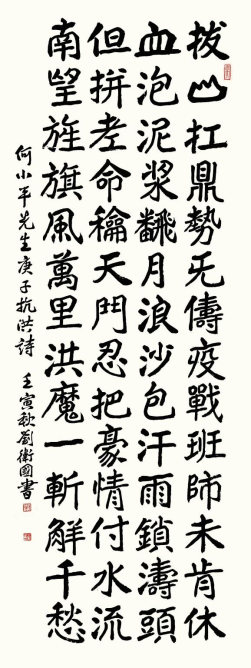 拔山扛鼎勢旡儔疫戰班師未肯休
血泡泥漿飜月浪沙包汗雨鎖濤頭
但拼老命龢天鬥忍把豪情付水流
南望旌旗風萬里洪魔一斬解千愁
何小平先生庚子抗洪詩 壬寅秋劉衛國書